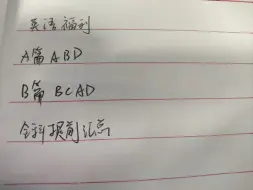 英语福利
A篇 ABD
B篇 BCAD
全科提前汇总